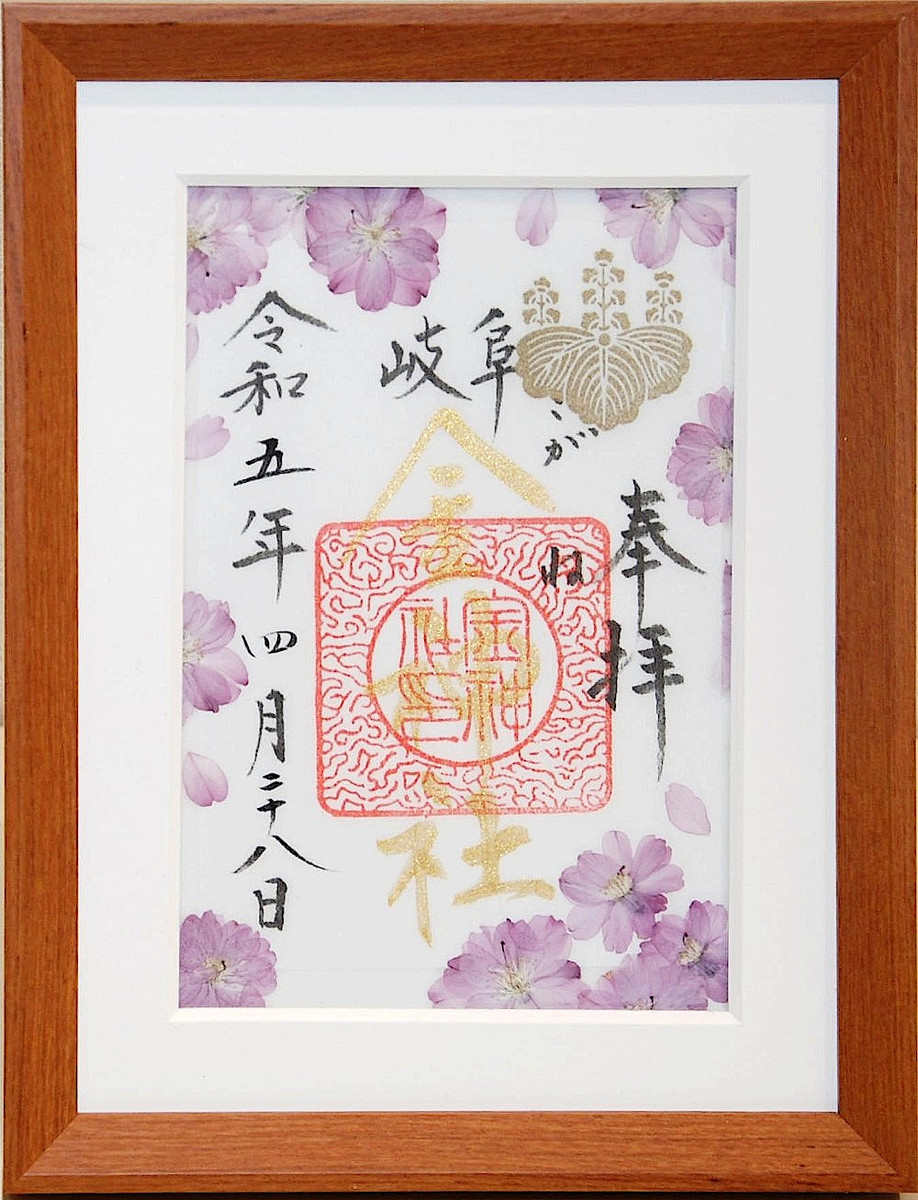 奉拝
岐阜
こがね
金神社
金神
社印
令和五年四月二十八日